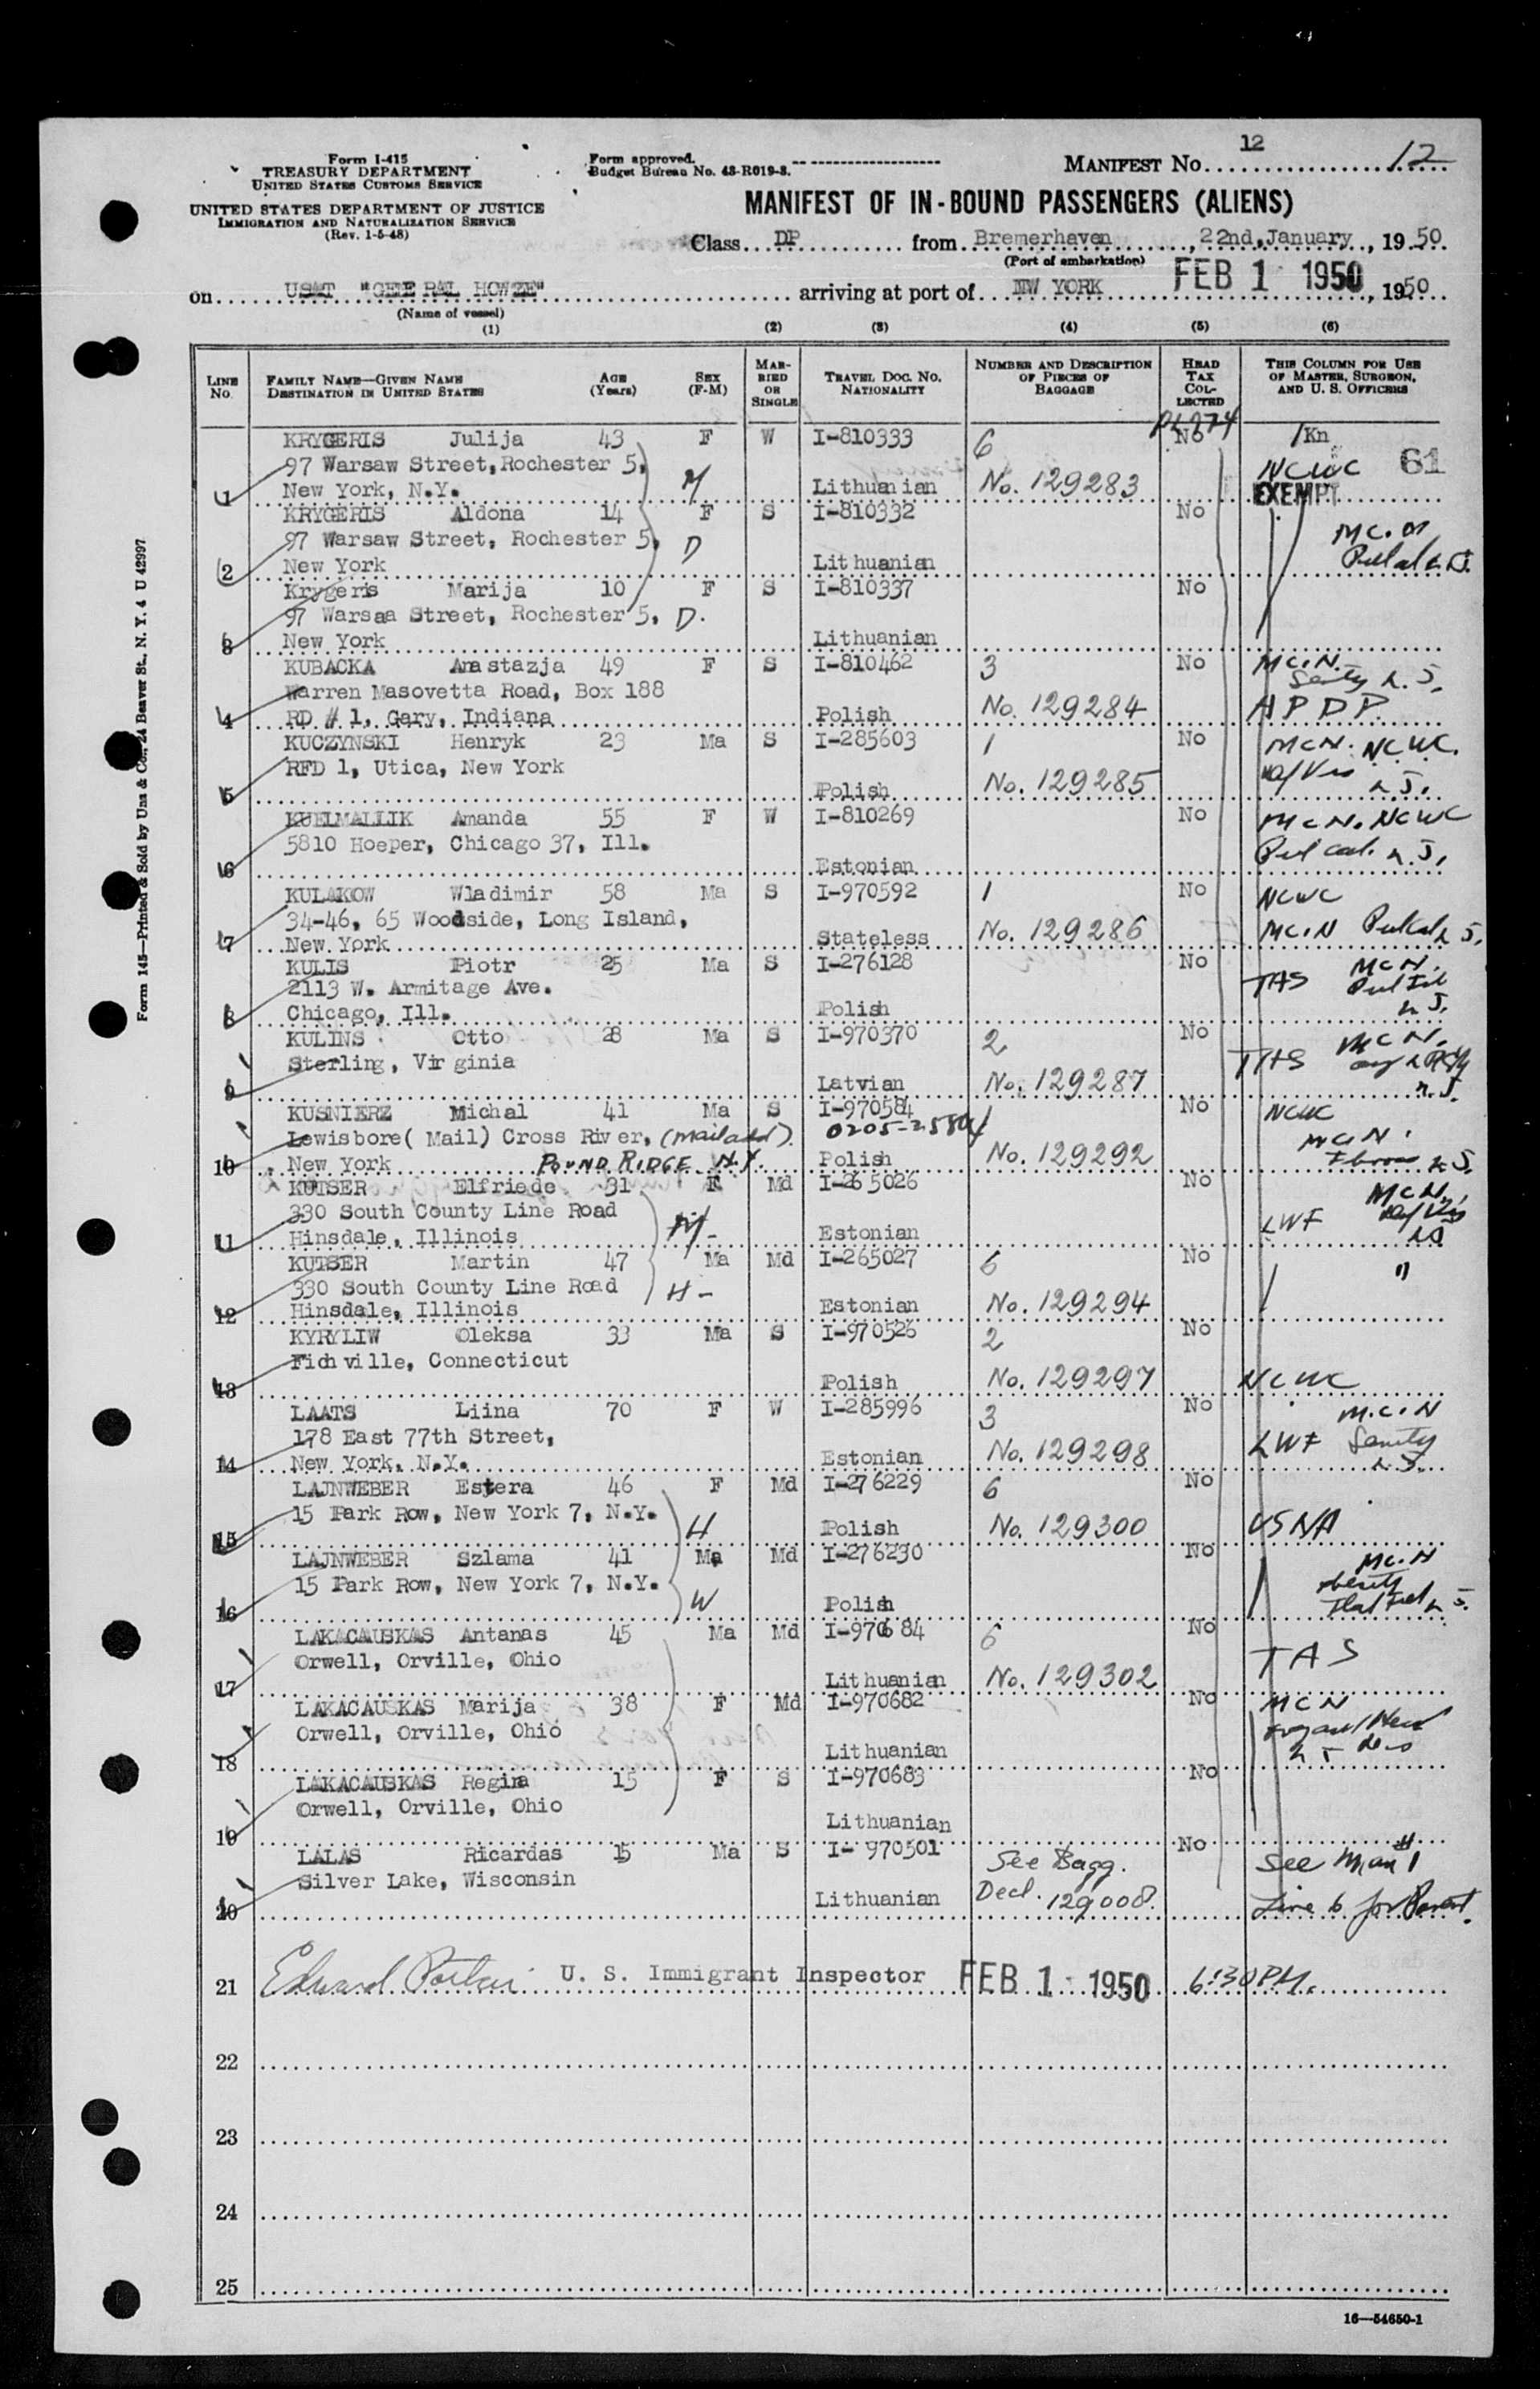 12
Form I-415
TREASURY DEPARTMENT
UNITED STATES CUSTOMS SERVICE
UNITED STATES DEPARTMENT OF JUSTICE
IMMIGRATION AND NATURALIZATION SERVICE
(Rev. 1-5-48)
Form approved.
Budget Bureau No. 43-R019-3.
MANIFEST No. 12
MANIFEST OF IN-BOUND PASSENGERS (ALIENS)
Class DP from Bremerhaven, 22nd, January, 1950
(Port of embarkation)
on USAT "GENERAL HOWZE" arriving at port of NEW YORK FEB 1 1950, 1950
(Name of vessel)
(1) (2) (3) (4) (5) (6)
LINE NO.
FAMILY NAME—GIVEN NAME
DESTINATION IN UNITED STATES
AGE (Years)
SEX (F-M)
MARRIED OR SINGLE
TRAVEL DOC. NO.
NATIONALITY
NUMBER AND DESCRIPTION OF PIECES OF BAGGAGE
HEAD TAX COLLECTED
THIS COLUMN FOR USE OF MASTER, SURGEON, AND U. S. OFFICERS
PL 774
KRYGERIS Julija 43 F W I-810333 6 No 1Kn
97 Warsaw Street, Rochester 5, NCWC 61
1 New York, N.Y. M Lithuanian No. 129283 EXEMPT
KRYGERIS Aldona 14 F S I-810332 No
97 Warsaw Street, Rochester 5, D
2 New York Lithuanian
Krygeris Marija 10 F S I-810337 No
97 Warsaa Street, Rochester 5, D.
3 New York Lithuanian
KUBACKA Anastazja 49 F S I-810462 3 No MC.N.
Warren Masovetta Road, Box 188 Senity L.J.
4 RD # 1, Gary, Indiana Polish No. 129284 APDP
KUCZYNSKI Henryk 23 Ma S I-285603 1 No MCN. NCWC.
RFD 1, Utica, New York
5 Polish No. 129285
KUELMALLIK Amanda 55 F W I-810269 No MCN. NCWC
5810 Hoeper, Chicago 37, Ill.
6 Estonian
KULAKOW Wladimir 58 Ma S I-970592 1 No NCWC
34-46, 65 Woodside, Long Island,
7 New York Stateless No. 129286 MC.N
KULIS Piotr 25 Ma S I-276128 No MCN.
2113 W. Armitage Ave. TAS
8 Chicago, Ill. Polish
KULINS Otto 28 Ma S I-970370 2 No MCN.
Sterling, Virginia TAS
9 Latvian No. 129287
KUSNIERZ Michal 41 Ma S I-970584 No NCWC
Lewisbore( Mail) Cross River, (mail add). 0205-25804 MCN.
10 New York POUND RIDGE N.Y. Polish No. 129292
KUTSER Elfriede 31 F Md I-265026 No MCN.
330 South County Line Road LWF
11 Hinsdale, Illinois Estonian
KUTSER Martin 47 Ma Md I-265027 6 No "
330 South County Line Road H-
12 Hinsdale, Illinois Estonian No. 129294
KYRYLIW Oleksa 33 Ma S I-970526 2 No
Fichville, Connecticut
13 Polish No. 129297 NCWC
LAATS Liina 70 F W I-285996 3 No M.C.N
178 East 77th Street, LWF Senity
14 New York, N.Y. Estonian No. 129298
LAJNWEBER Estera 46 F Md I-276229 6 No
15 Park Row, New York 7, N.Y. H
15 Polish No. 129300 USNA
LAJNWEBER Szlama 41 Ma Md I-276230 No MC.N
15 Park Row, New York 7, N.Y. W
16 Polish
LAKACAUSKAS Antanas 45 Ma Md I-970684 6 No
Orwell, Orville, Ohio TAS
17 Lithuanian No. 129302
LAKACAUSKAS Marija 38 F Md I-970682 No MCN
Orwell, Orville, Ohio
18 Lithuanian
LAKACAUSKAS Regina 15 F S I-970683 No
Orwell, Orville, Ohio
19 Lithuanian
LALAS Ricardas 15 Ma S I-970501 See Bagg. No See Man #1
Silver Lake, Wisconsin
20 Lithuanian Decl. 129008. Line 6 for Parent.
21 Edward U. S. Immigrant Inspector FEB 1 1950 6:30 PM.
22
23
24
25
16—54650-1
Form 145—Printed & Sold by Unz & Co., 24 Beaver St., N. Y. 4 U 42997